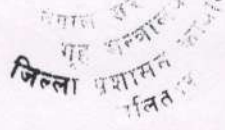 नेपाल सर
गृह मन्त्रालय
जिल्ला प्रशासन कार्या
ललितपुर